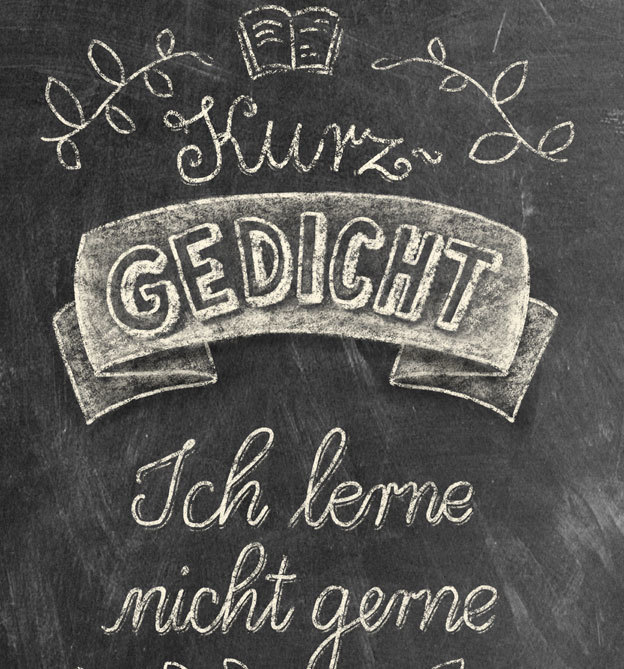 Kurz-
GEDICHT
Ich lerne
nicht gerne